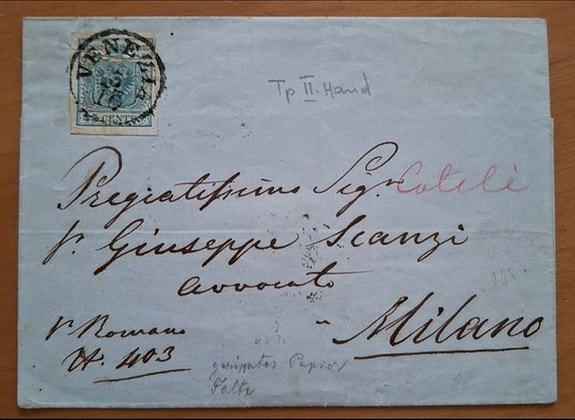 VENEZIA
13
10
45 CENTES
Tp II-Hand
Pregiatissimo Sigr Cotelé
Sr. Giuseppe Scanzi
avvocato
Milano
Sr Romano
N. 403
geripptes Papier
Falte